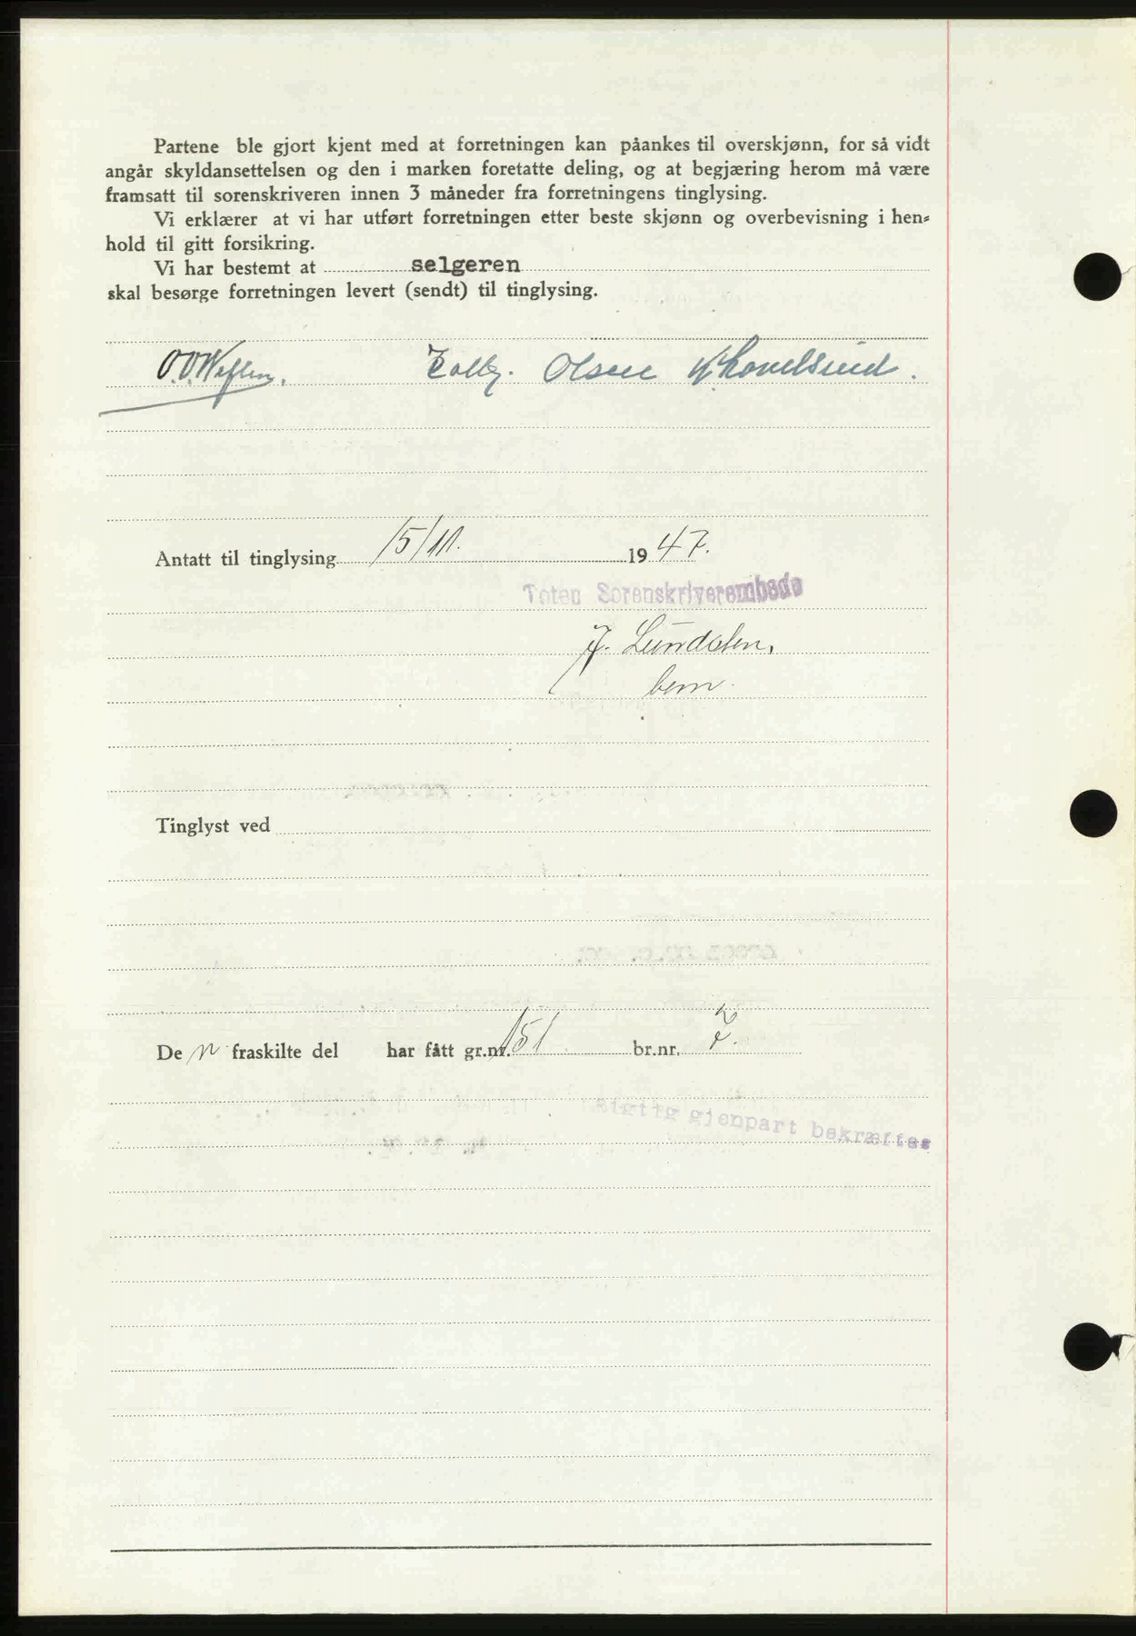 Partene ble gjort kjent med at forretningen kan påankes til overskjønn, for så vidt
angår skyldansettelsen og den i marken foretatte deling, og at begjæring herom må være
framsatt til sorenskriveren innen 3 måneder fra forretningens tinglysing.
Vi erklærer at vi har utført forretningen etter beste skjønn og overbevisning i hen-
hold til gitt forsikring.
Vi har bestemt at selgeren
skal besørge forretningen levert (sendt) til tinglysing.
O.O. Weflen. Olsen
Antatt til tinglysing 15/11. 1947.
Toten Sorenskriverembede
J. Lundalen,
bem.
Tinglyst ved
De n fraskilte del har fått gr.nr. 151 br.nr.
Rigtig gjenpart bekræftes